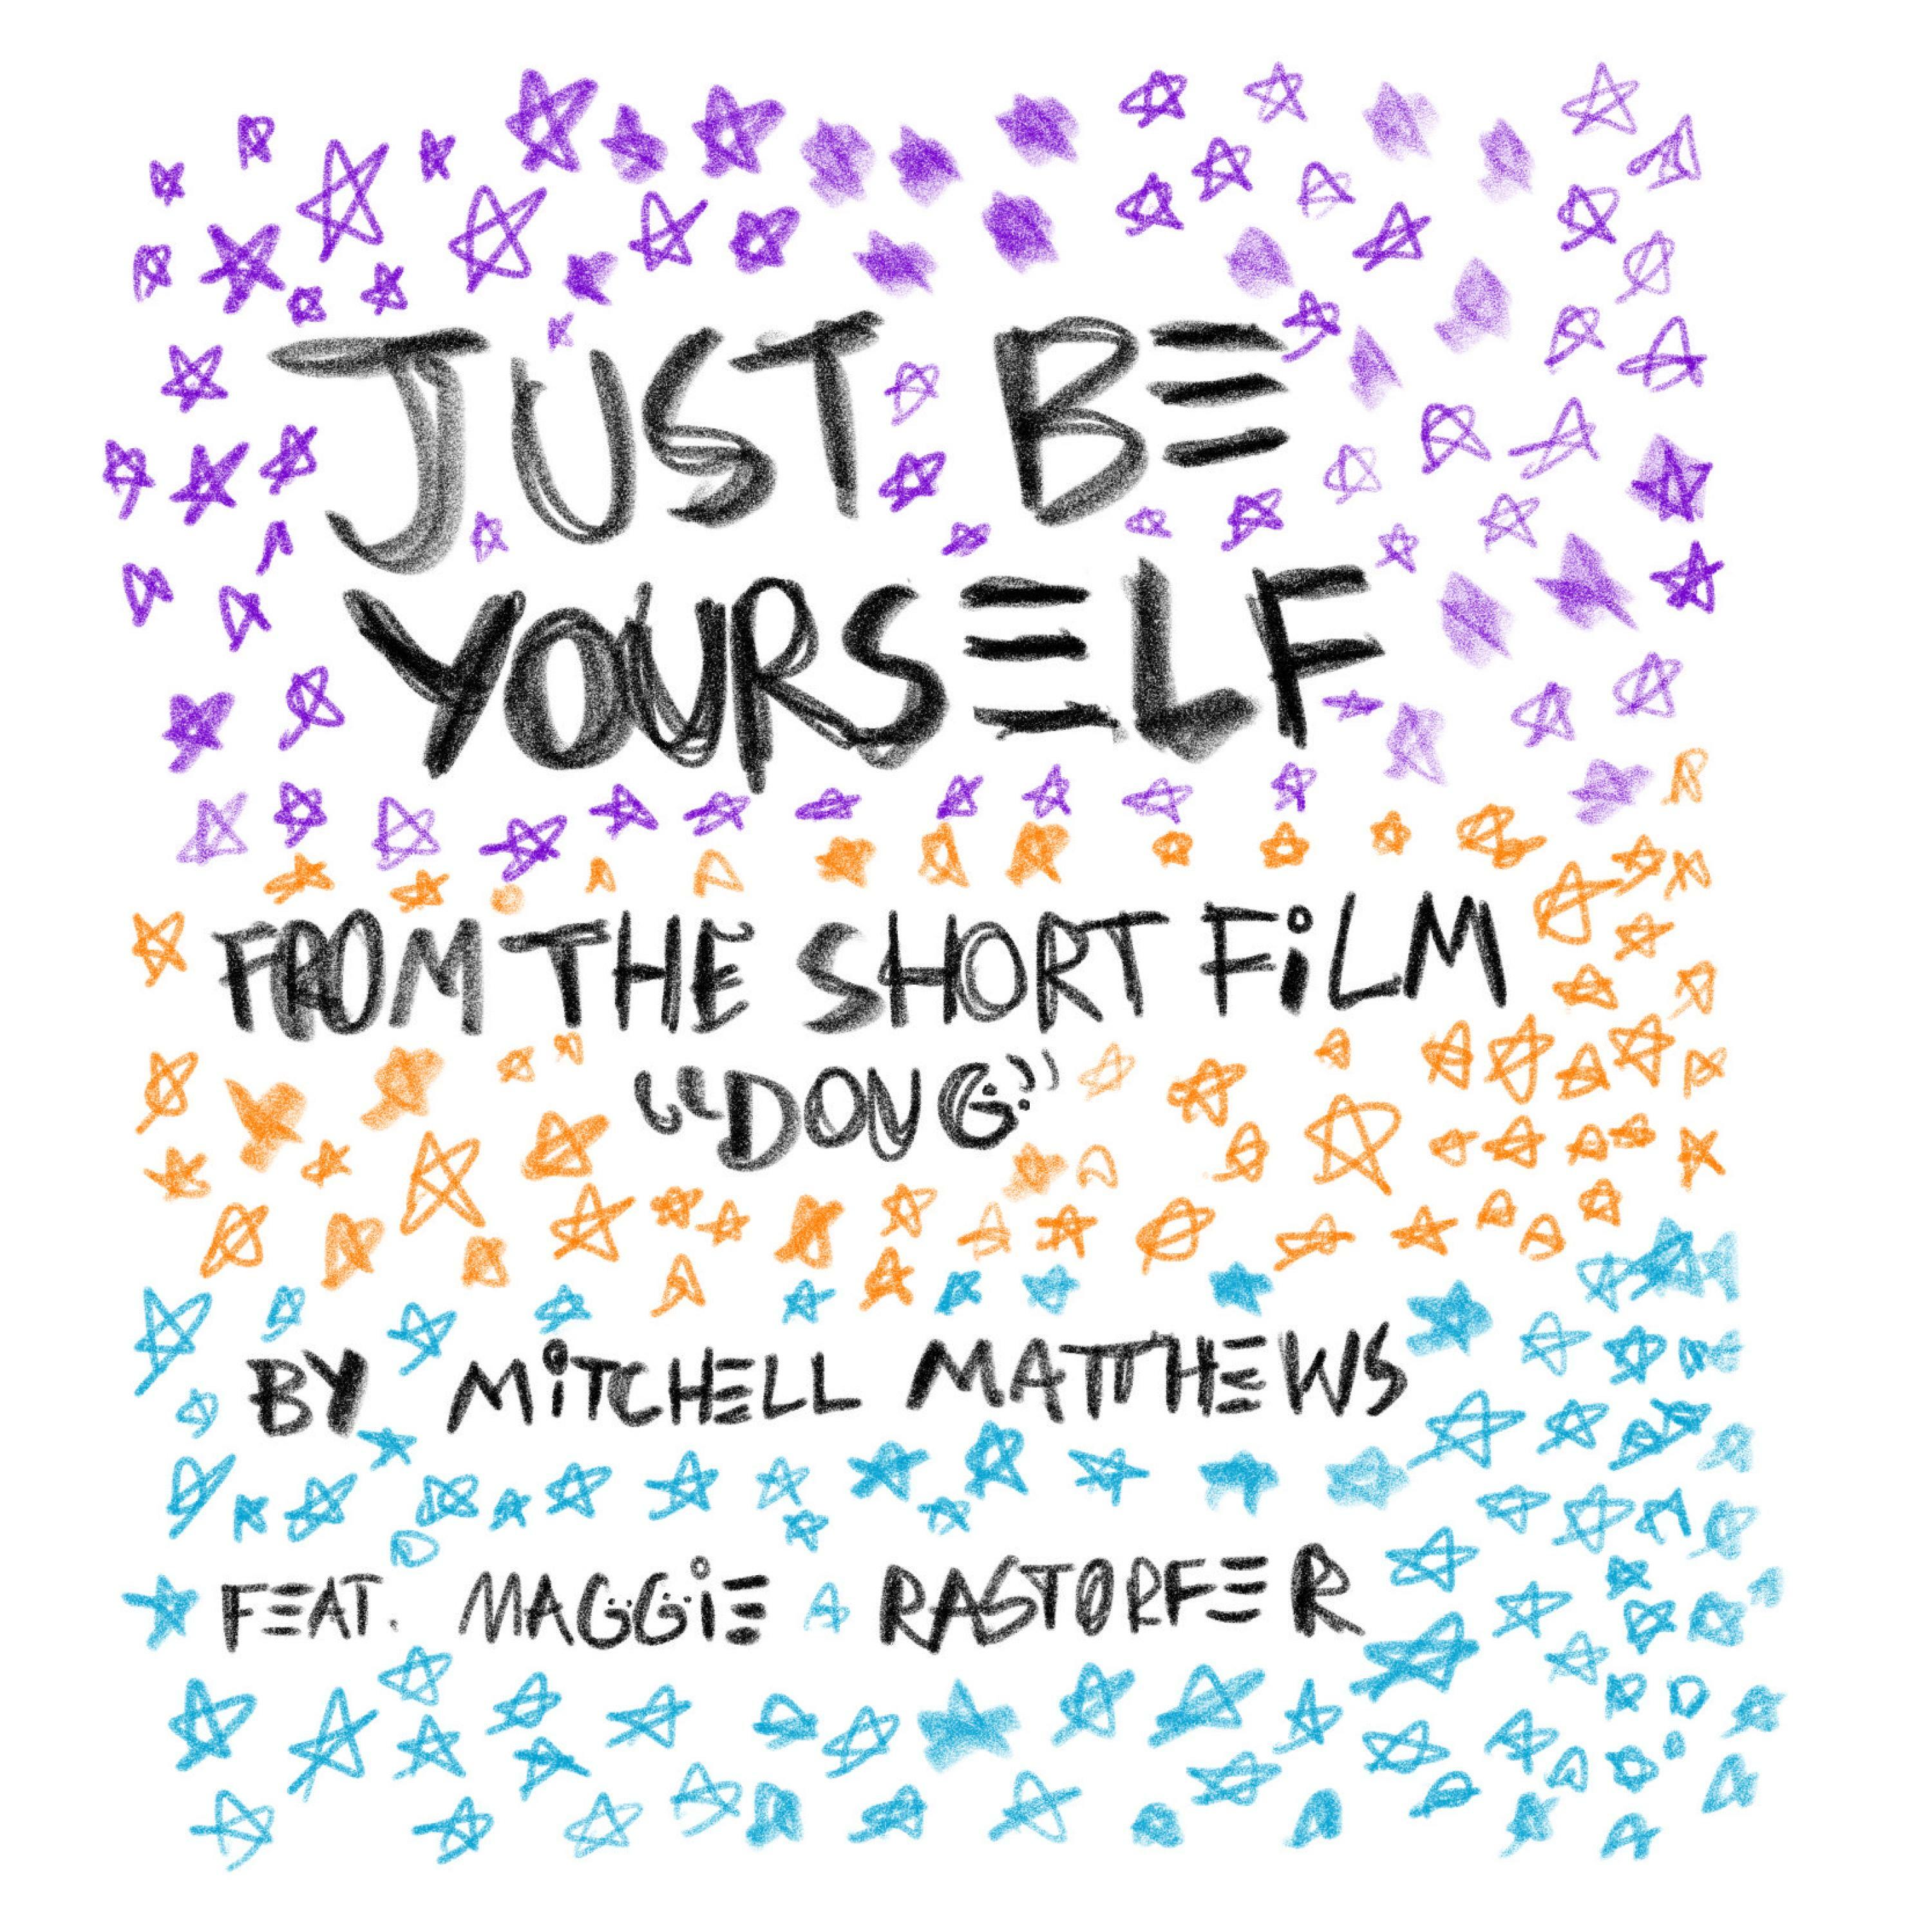 JUST BE
YOURSELF
FROM THE SHORT FiLM
“DOUG”
BY MiTCHELL MATTHEWS
FEAT. MAGGiE RASTORFER